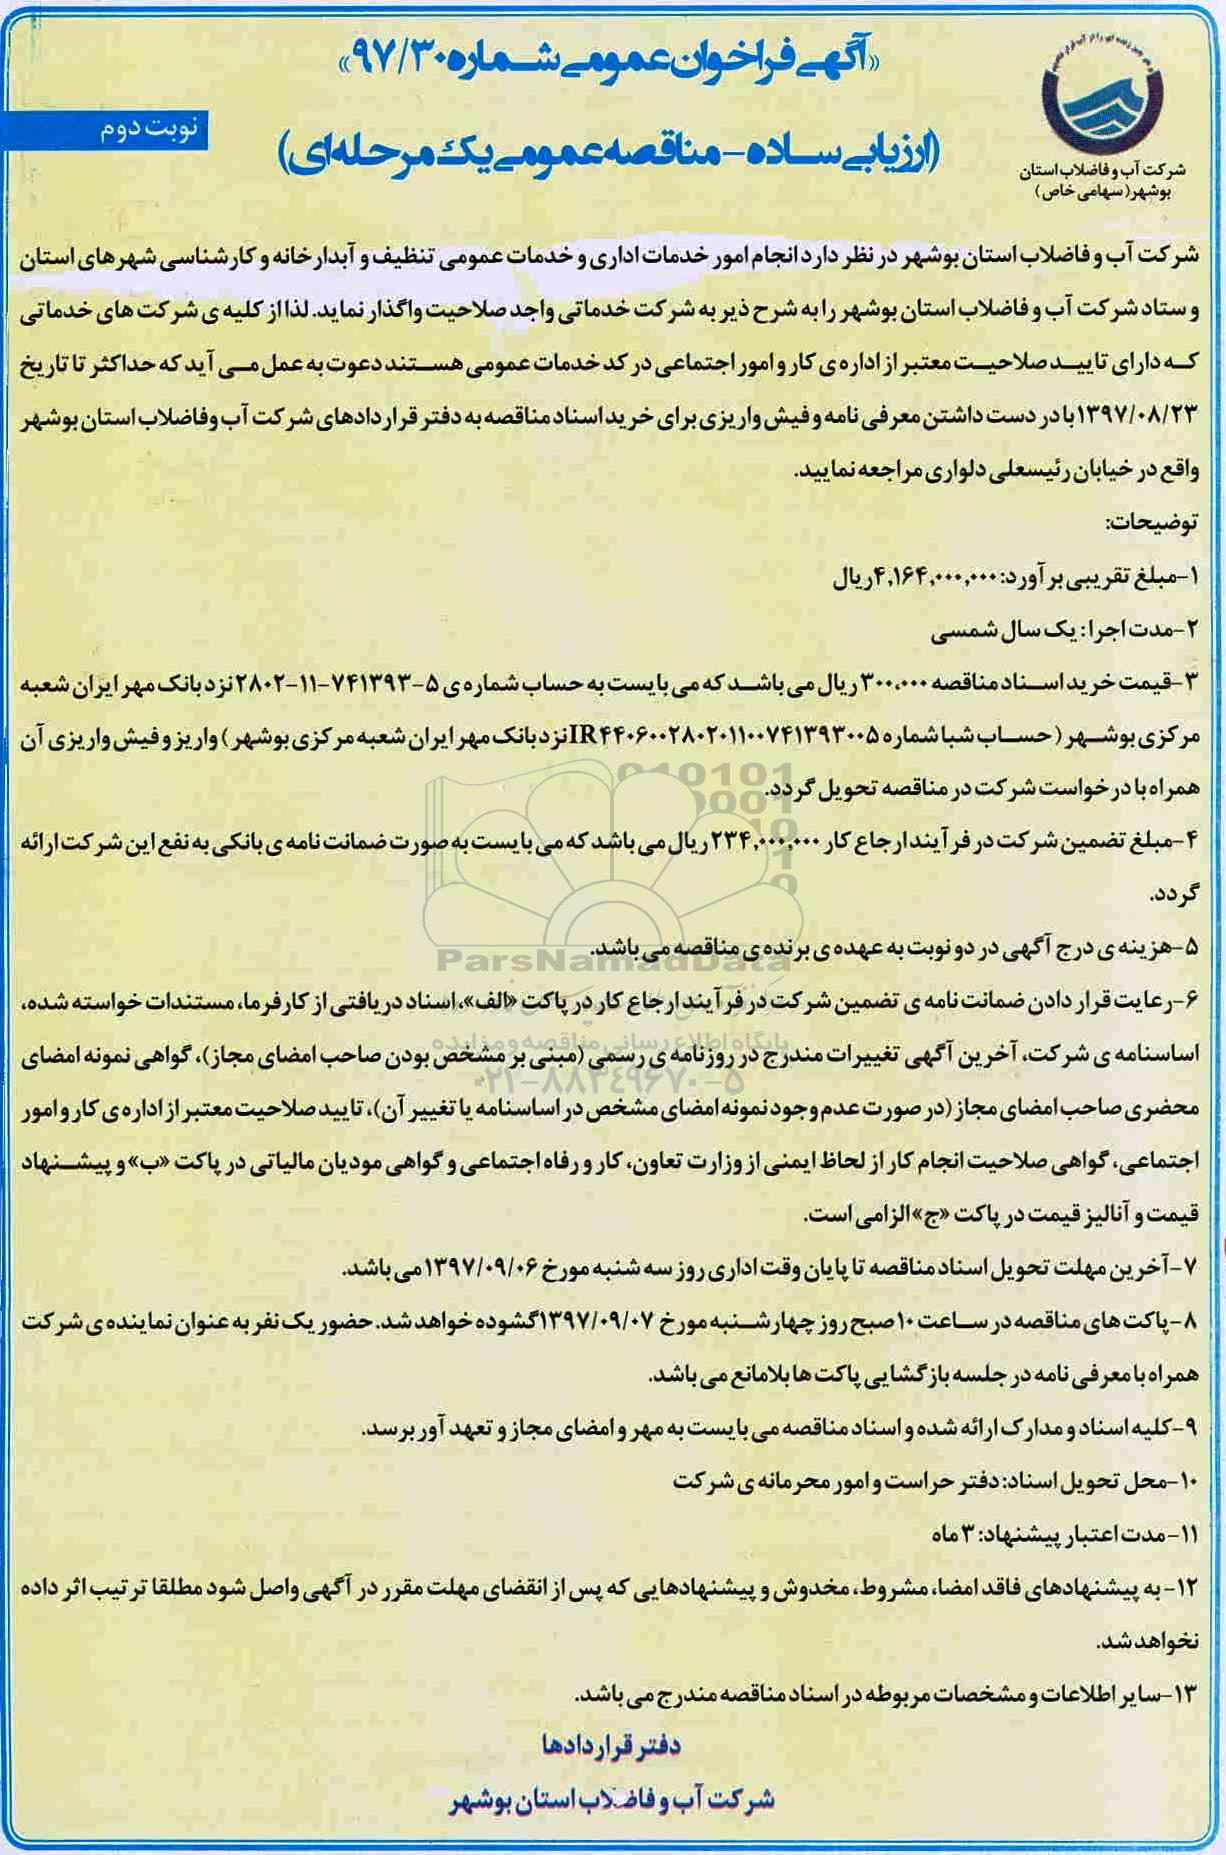 «آگهی فراخوان عمومی شماره ۹۷/۳۰»
(ارزیابی ساده - مناقصه عمومی یک مرحله‌ای)
نوبت دوم
شرکت آب و فاضلاب استان
بوشهر (سهامی خاص)
شرکت آب و فاضلاب استان بوشهر در نظر دارد انجام امور خدمات اداری و خدمات عمومی تنظیف و آبدارخانه و کارشناسی شهرهای استان
و ستاد شرکت آب و فاضلاب استان بوشهر را به شرح ذیر به شرکت خدماتی واجد صلاحیت واگذار نماید. لذا از کلیه ی شرکت های خدماتی
که دارای تایید صلاحیت معتبر از اداره ی کار و امور اجتماعی در کد خدمات عمومی هستند دعوت به عمل می آید که حداکثر تا تاریخ
۱۳۹۷/۰۸/۲۳ با در دست داشتن معرفی نامه و فیش واریزی برای خرید اسناد مناقصه به دفتر قراردادهای شرکت آب وفاضلاب استان بوشهر
واقع در خیابان رئیسعلی دلواری مراجعه نمایید.
توضیحات:
۱-مبلغ تقریبی برآورد: ۴,۱۶۴,۰۰۰,۰۰۰ ریال
۲-مدت اجرا: یک سال شمسی
۳-قیمت خرید اسناد مناقصه ۳۰۰,۰۰۰ ریال می باشد که می بایست به حساب شماره ی ۵-۷۴۱۳۹۳-۱۱-۲۸۰۲ نزد بانک مهر ایران شعبه
مرکزی بوشهر (حساب شبا شماره IR۴۴۰۶۰۰۲۸۰۲۰۱۱۰۰۷۴۱۳۹۳۰۰۵ نزد بانک مهر ایران شعبه مرکزی بوشهر) واریز و فیش واریزی آن
همراه با درخواست شرکت در مناقصه تحویل گردد.
۴-مبلغ تضمین شرکت در فرآیند ارجاع کار ۲۳۴,۰۰۰,۰۰۰ ریال می باشد که می بایست به صورت ضمانت نامه ی بانکی به نفع این شرکت ارائه
گردد.
۵-هزینه ی درج آگهی در دو نوبت به عهده ی برنده ی مناقصه می باشد.
ParsNamadData
۶-رعایت قرار دادن ضمانت نامه ی تضمین شرکت در فرآیند ارجاع کار در پاکت «الف»، اسناد دریافتی از کارفرما، مستندات خواسته شده،
پایگاه اطلاع رسانی مناقصه و مزایده
اساسنامه ی شرکت، آخرین آگهی تغییرات مندرج در روزنامه ی رسمی (مبنی بر مشخص بودن صاحب امضای مجاز)، گواهی نمونه امضای
۰۲۱-۸۸۳۴۹۶۷۰-۵
محضری صاحب امضای مجاز (در صورت عدم وجود نمونه امضای مشخص در اساسنامه یا تغییر آن)، تایید صلاحیت معتبر از اداره ی کار و امور
اجتماعی، گواهی صلاحیت انجام کار از لحاظ ایمنی از وزارت تعاون، کار و رفاه اجتماعی و گواهی مودیان مالیاتی در پاکت «ب» و پیشنهاد
قیمت و آنالیز قیمت در پاکت «ج» الزامی است.
۷-آخرین مهلت تحویل اسناد مناقصه تا پایان وقت اداری روز سه شنبه مورخ ۱۳۹۷/۰۹/۰۶ می باشد.
۸-پاکت های مناقصه در ساعت ۱۰ صبح روز چهارشنبه مورخ ۱۳۹۷/۰۹/۰۷ گشوده خواهد شد. حضور یک نفر به عنوان نماینده ی شرکت
همراه با معرفی نامه در جلسه بازگشایی پاکت ها بلامانع می باشد.
۹-کلیه اسناد و مدارک ارائه شده و اسناد مناقصه می بایست به مهر و امضای مجاز و تعهد آور برسد.
۱۰-محل تحویل اسناد: دفتر حراست و امور محرمانه ی شرکت
۱۱-مدت اعتبار پیشنهاد: ۳ ماه
۱۲-به پیشنهادهای فاقد امضا، مشروط، مخدوش و پیشنهادهایی که پس از انقضای مهلت مقرر در آگهی واصل شود مطلقا ترتیب اثر داده
نخواهد شد.
۱۳-سایر اطلاعات و مشخصات مربوطه در اسناد مناقصه مندرج می باشد.
دفتر قراردادها
شرکت آب و فاضلاب استان بوشهر